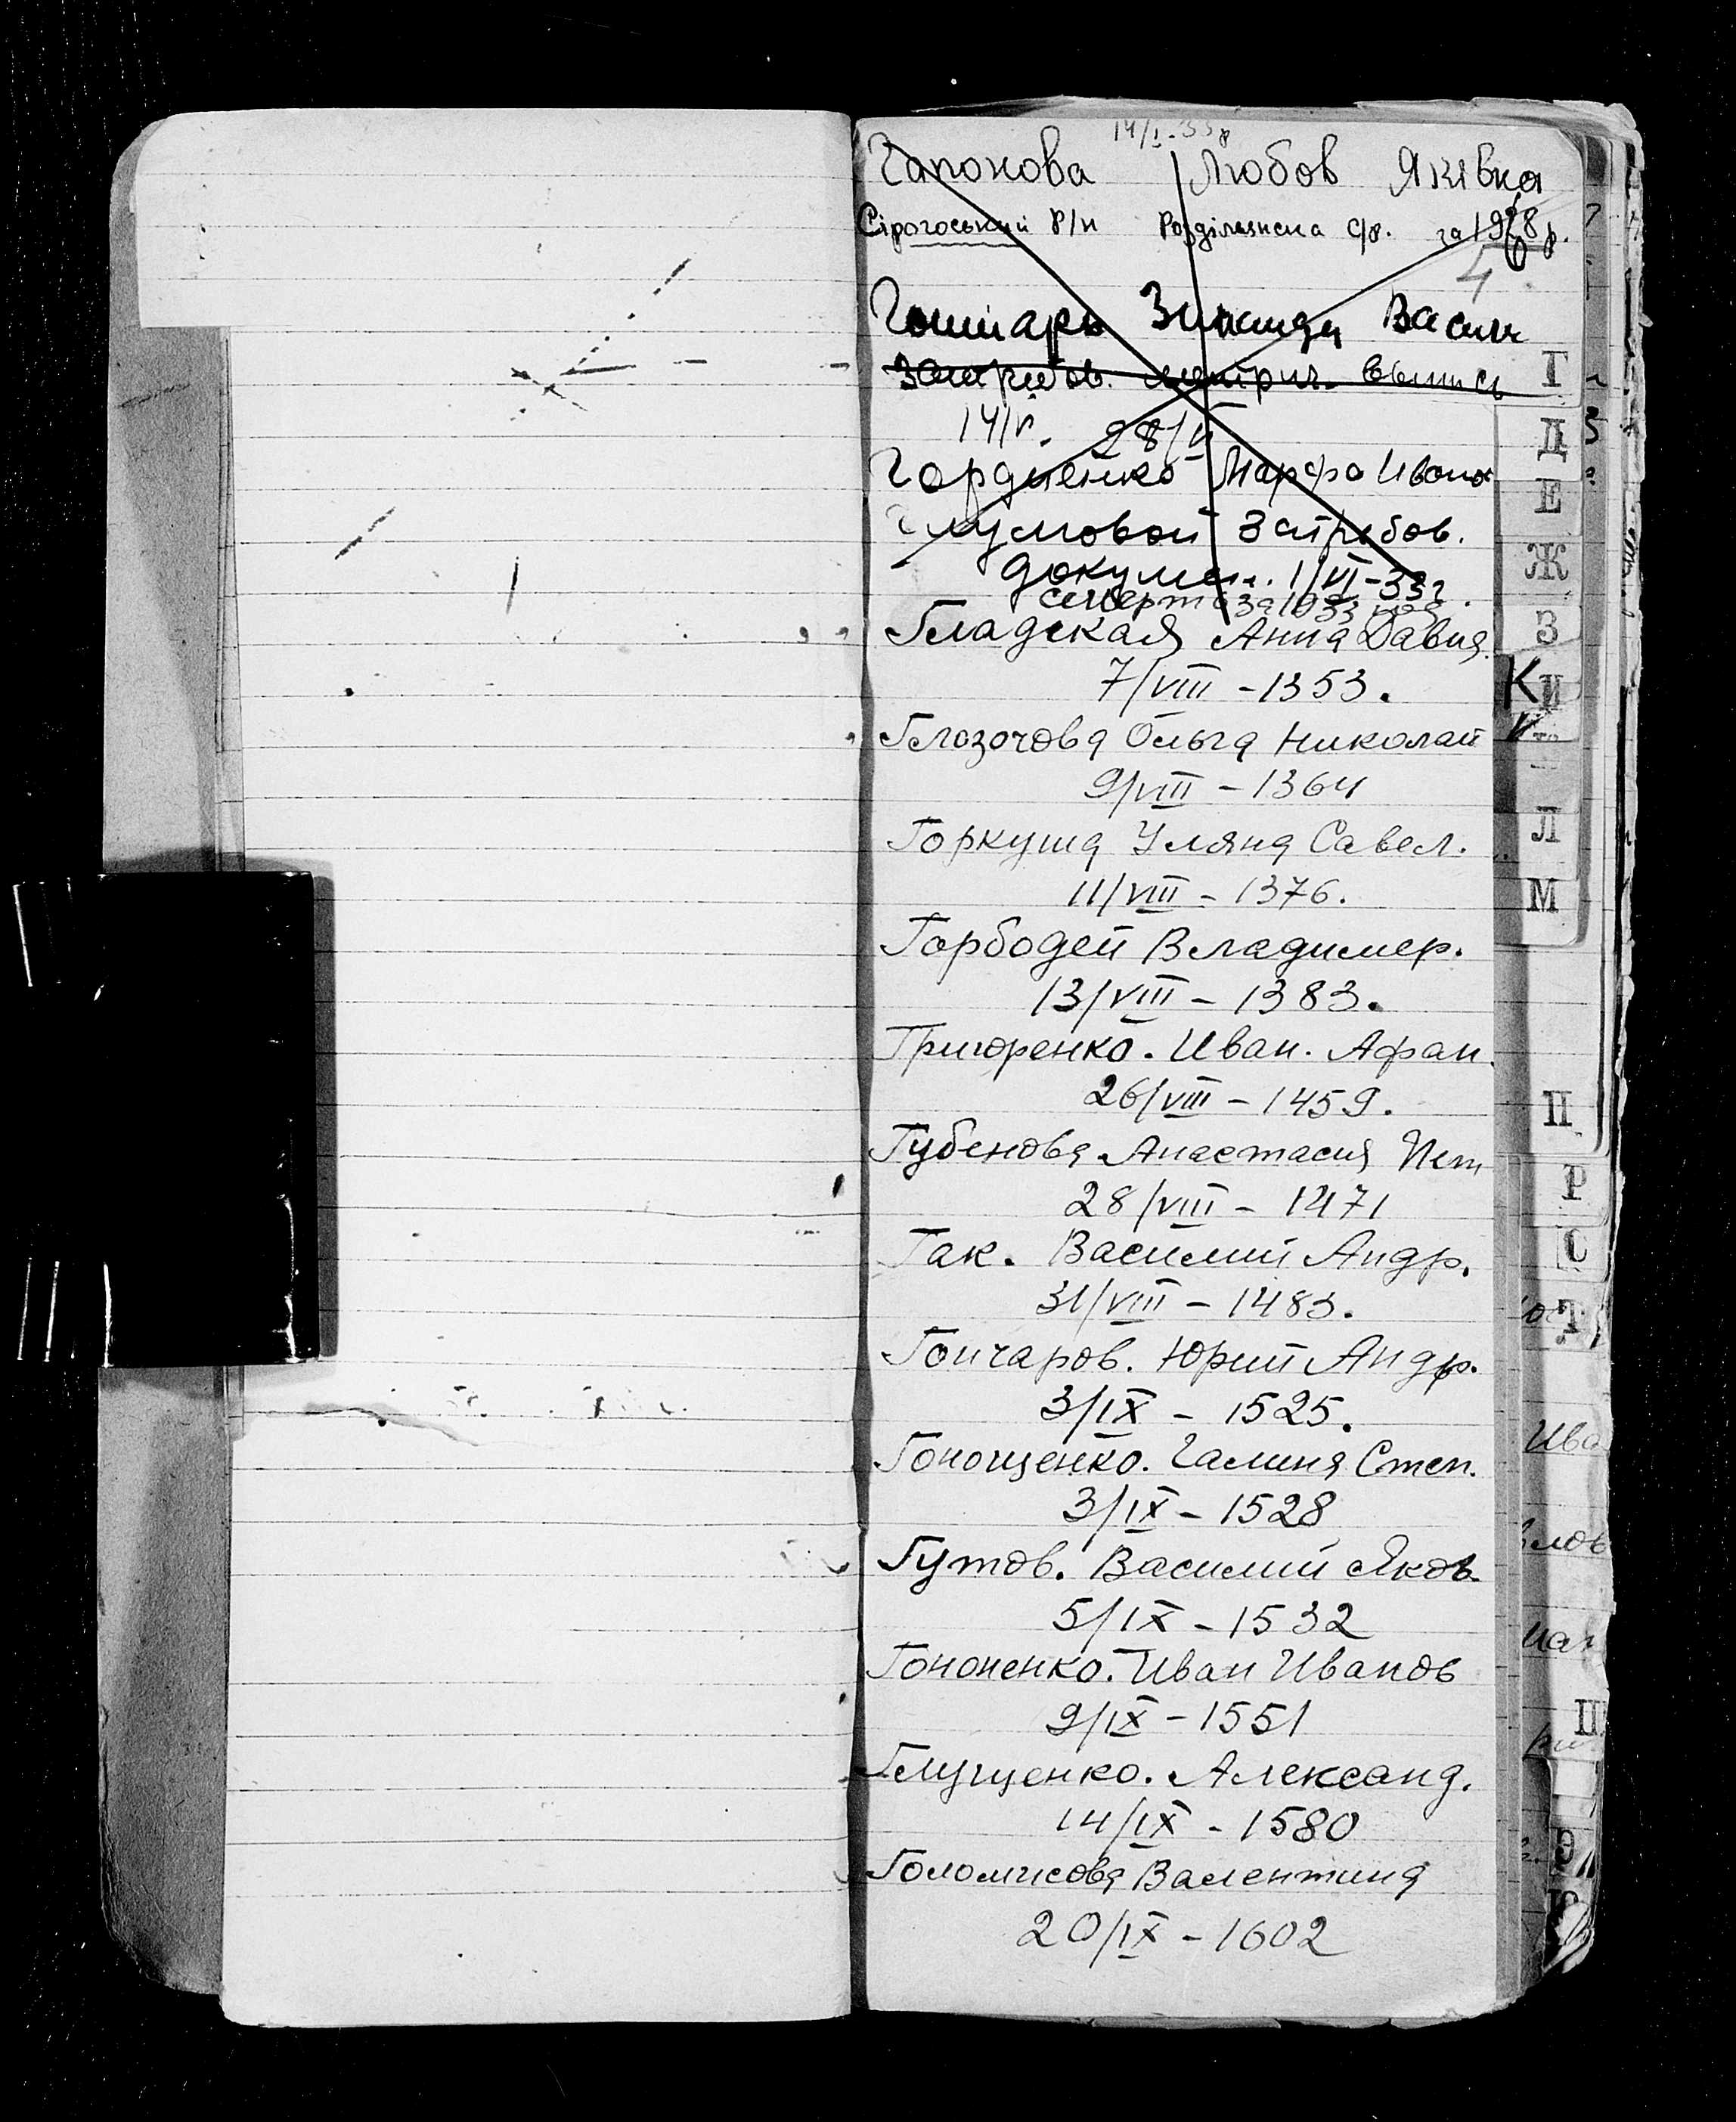 14/I-33р
Гапонова Любов Яківна
Сірогоський р/н Розділянська с/р. за 1928 р.
4
Гонтарь Зинаида Васил
Затребов. метрич. выпись
14/V. 28/V
Гордиенко Марфа Ивано
Глумовой Затребов.
докумен. 1/VI-33г.
смерть за 1933 год
Гладская Анна Давид.
7/VIII - 1353.
Ольга Николай
9/VIII - 1364
Горкуша Уляна Савел.
11/VIII - 1376.
Горбодей Владимер.
13/VIII - 1383.
Григоренко. Иван. Афан.
26/VIII - 1459.
Губенова Анастасия Пет
28/VIII - 1471
Гак. Василий Андр.
31/VIII - 1483.
Гончаров. Юрий Андр.
3/IX - 1525.
Гонощенко. Галина Степ.
3/IX - 1528
Гутов. Василий Яков.
5/IX - 1532
Гононенко. Иван Иванов
9/IX - 1551
Глущенко. Александ.
14/IX - 1580
Голомисова Валентина
20/IX - 1602
Д
Е
Ж
З
К
И
Л
М
П
Р
С
Т
Э